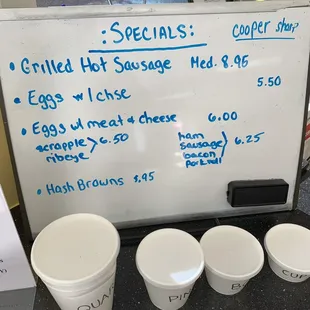 : SPECIALS :
cooper sharp
• Grilled Hot Sausage Med. 8.95
5.50
• Eggs w/chse
• Eggs w/ meat & cheese 6.00
scrapple > 6.50
ribeye
ham
sausage > 6.25
bacon
porkroll
• Hash Browns $.95
QUAR
PIN
CUP